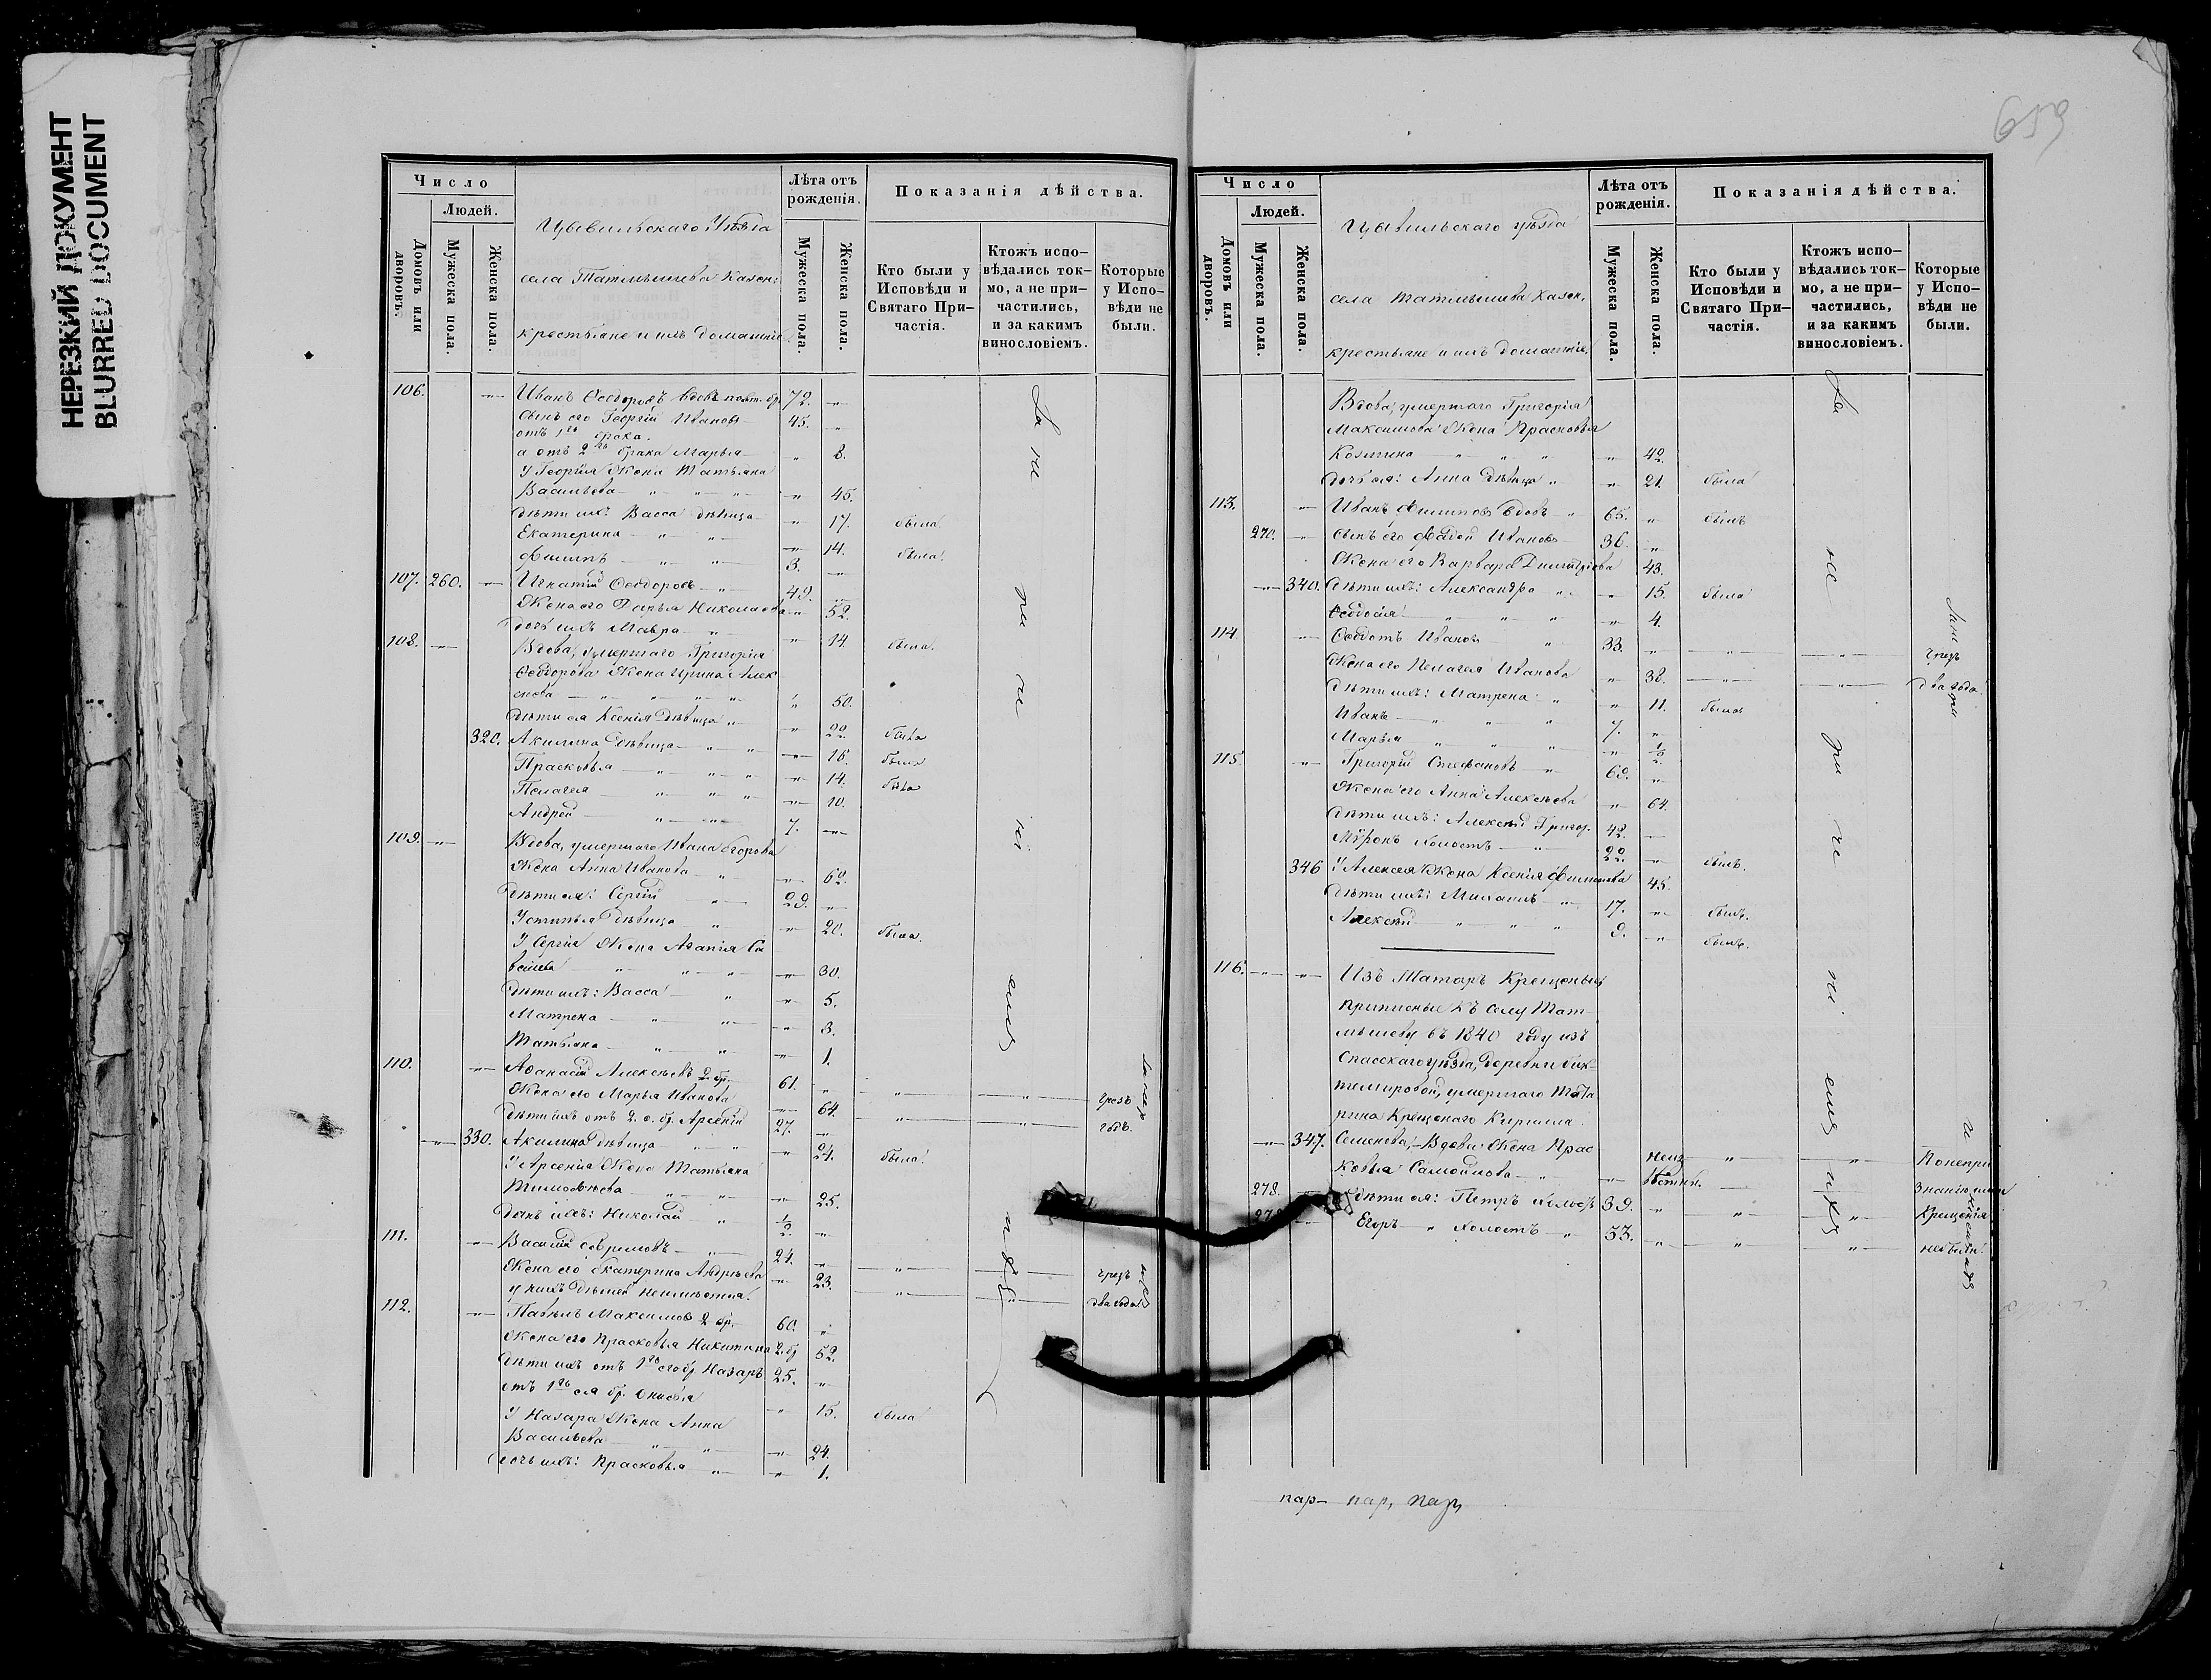 НЕРЕЗКИЙ ДОКУМЕНТ
BLURRED DOCUMENT
659
Число
Людей.
Домовъ или дворовъ.
Мужеска пола.
Женска пола.
Цывильскаго Уѣзда
села Татмышева Казен:
крестьяне и ихъ домашніе
Лѣта отъ рожденія.
Мужеска пола.
Женска пола.
Показанія дѣйства.
Кто были у Исповѣди и Святаго Причастія.
Ктожъ исповѣдались токмо, а не причастились, и за какимъ винословіемъ.
Которые у Исповѣди не были.
106. Иванъ Ѳеодоровъ вдовъ 72.
Сынъ его Георгій Ивановъ 45.
отъ 1го брака.
а отъ 2го брака Марья 8.
У Георгія Жена Татьяна
Васильева 45.
Дѣти ихъ: Васса дѣвица 17. была.
Екатерина 14. была.
Филипъ 3.
107. 260. Игнатій Ѳеодоровъ 49.
Жена его Дарья Николаева 52.
Дочь ихъ Мавра 14. была.
108. Вдова, умершаго Григорія
Ѳеодорова Жена Ирина Алек
сѣева 50.
Дѣти ея Ксенія дѣвица 22. была
320. Акилина дѣвица 18. была
Прасковья 14. была
Пелагея 10.
Андрей 7.
109. Вдова, умершаго Ивана Егорова
Жена Анна Иванова 62.
Дѣти ея: Сергій 29.
Устинья дѣвица 20. была.
У Сергія Жена Агапія Са
вельева 30.
Дѣти ихъ: Васса 5.
Матрена 3.
Татьяна 1.
110. Аѳанасій Алексѣевъ 2 бр. 61. чрезъ
Жена его Марья Иванова 64. годъ.
Дѣти ихъ отъ 2. о. бр. Арсеній 27.
330. Акилина дѣвица 24. была
У Арсенія Жена Татьяна
Тимоѳѣева 25.
Сынъ ихъ: Николай ½
111. Василій Ефремовъ 24. чрезъ
Жена его Екатерина Андрѣева 23. два года
у нихъ Дѣтей неимѣется.
112. Павелъ Максимовъ 2 бр. 60.
Жена его Прасковья Никитина 2. бр 52.
Дѣти ихъ отъ 1го его бр. Назаръ 25.
отъ 1го ея бр. Ѳнисья 15. была
У Назара Жена Анна
Васильева 24.
Дочь ихъ: Прасковья 1.
За не при че ні емъ ихъ
Число
Людей.
Домовъ или дворовъ.
Мужеска пола.
Женска пола.
Цывильскаго уѣзда
села Татмышева Казен.
крестьяне и ихъ домашніе,
Лѣта отъ рожденія.
Мужеска пола.
Женска пола.
Показанія дѣйства.
Кто были у Исповѣди и Святаго Причастія.
Ктожъ исповѣдались токмо, а не причастились, и за какимъ винословіемъ.
Которые у Исповѣди не были.
Вдова, умершаго Григорія
Максимова Жена Прасковья
Козмина 42.
Дочь ея: Анна дѣвица 21. была
113. Иванъ Филиповъ вдовъ 65. былъ
270. Сынъ его Фадей Ивановъ 36.
Жена его Варвара Димитріева 43.
340. Дѣти ихъ: Александра 15. была
Ѳеодосія 4.
114. Ѳеодотъ Ивановъ 33. чрезъ
Жена его Пелагея Иванова 38. два года
Дѣти ихъ: Матрена 11. была
Иванъ 7.
Марья ½
115. Григорій Стефановъ 69.
Жена его Анна Алексѣева 64.
Дѣти ихъ: Алексѣй Григор. 42.
Мѵронъ холостъ 22. былъ.
346 У Алексѣя Жена Ксенія Филипова 45.
Дѣти ихъ: Михаилъ 17. былъ.
Алексѣй 9. былъ.
116. Изъ Татаръ Крещеныхъ
приписные къ селу Тат
мышеву въ 1840 году изъ
Спасскаго уѣзда, деревни Бик-
темировой, умершаго Тата
рина Крещенаго Кирилла
347. Семенова, Вдова Жена Прас
ковья Самойлова неиз вѣстн.
278. Дѣти ея: Петръ холостъ 39.
Егоръ холостъ 33.
По непри
знанію ими
Крещенія
не были.
За не при че ні емъ ихъ
пар- пар, пар,